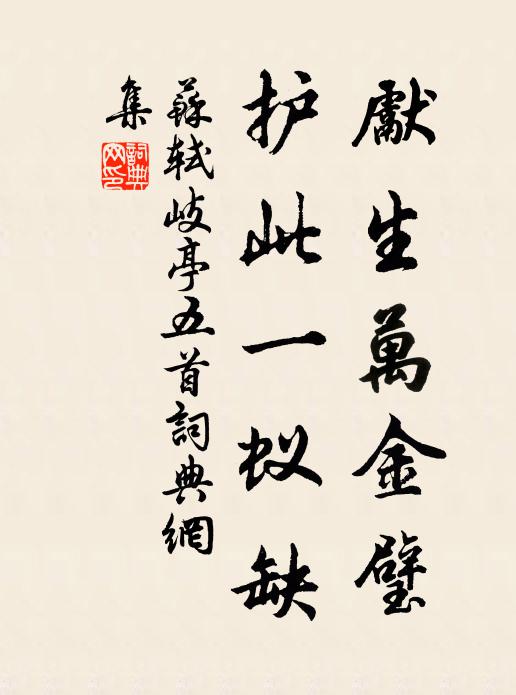 獻生萬金璧
护此一蚁缺
蘇軾岐亭五首詞典網
集
詞典網印